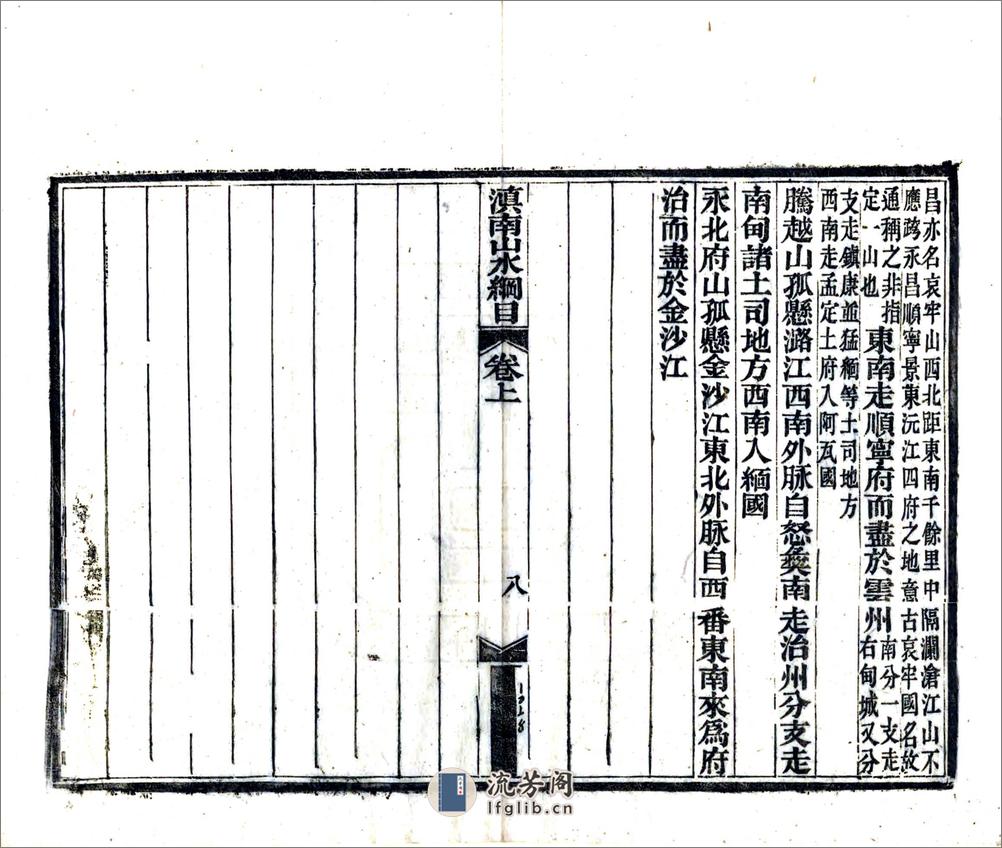 昌亦名哀牢山西北距東南千餘里中隔瀾滄江山不
應跨永昌順寧景東沅江四府之地意古哀牢國名故
通稱之非指
定一山也
東南走順寧府而盡於雲州
南分一支走
右甸城又分
支走鎮康並猛緬等土司地方
西南走孟定土府入阿瓦國
騰越山孤懸潞江西南外脉自怒彝南走治州分支走
南甸諸土司地方西南入緬國
永北府山孤懸金沙江東北外脉自西番東南來爲府
治而盡於金沙江
滇南山水綱目 卷上 八
流芳阁
lfglib.cn